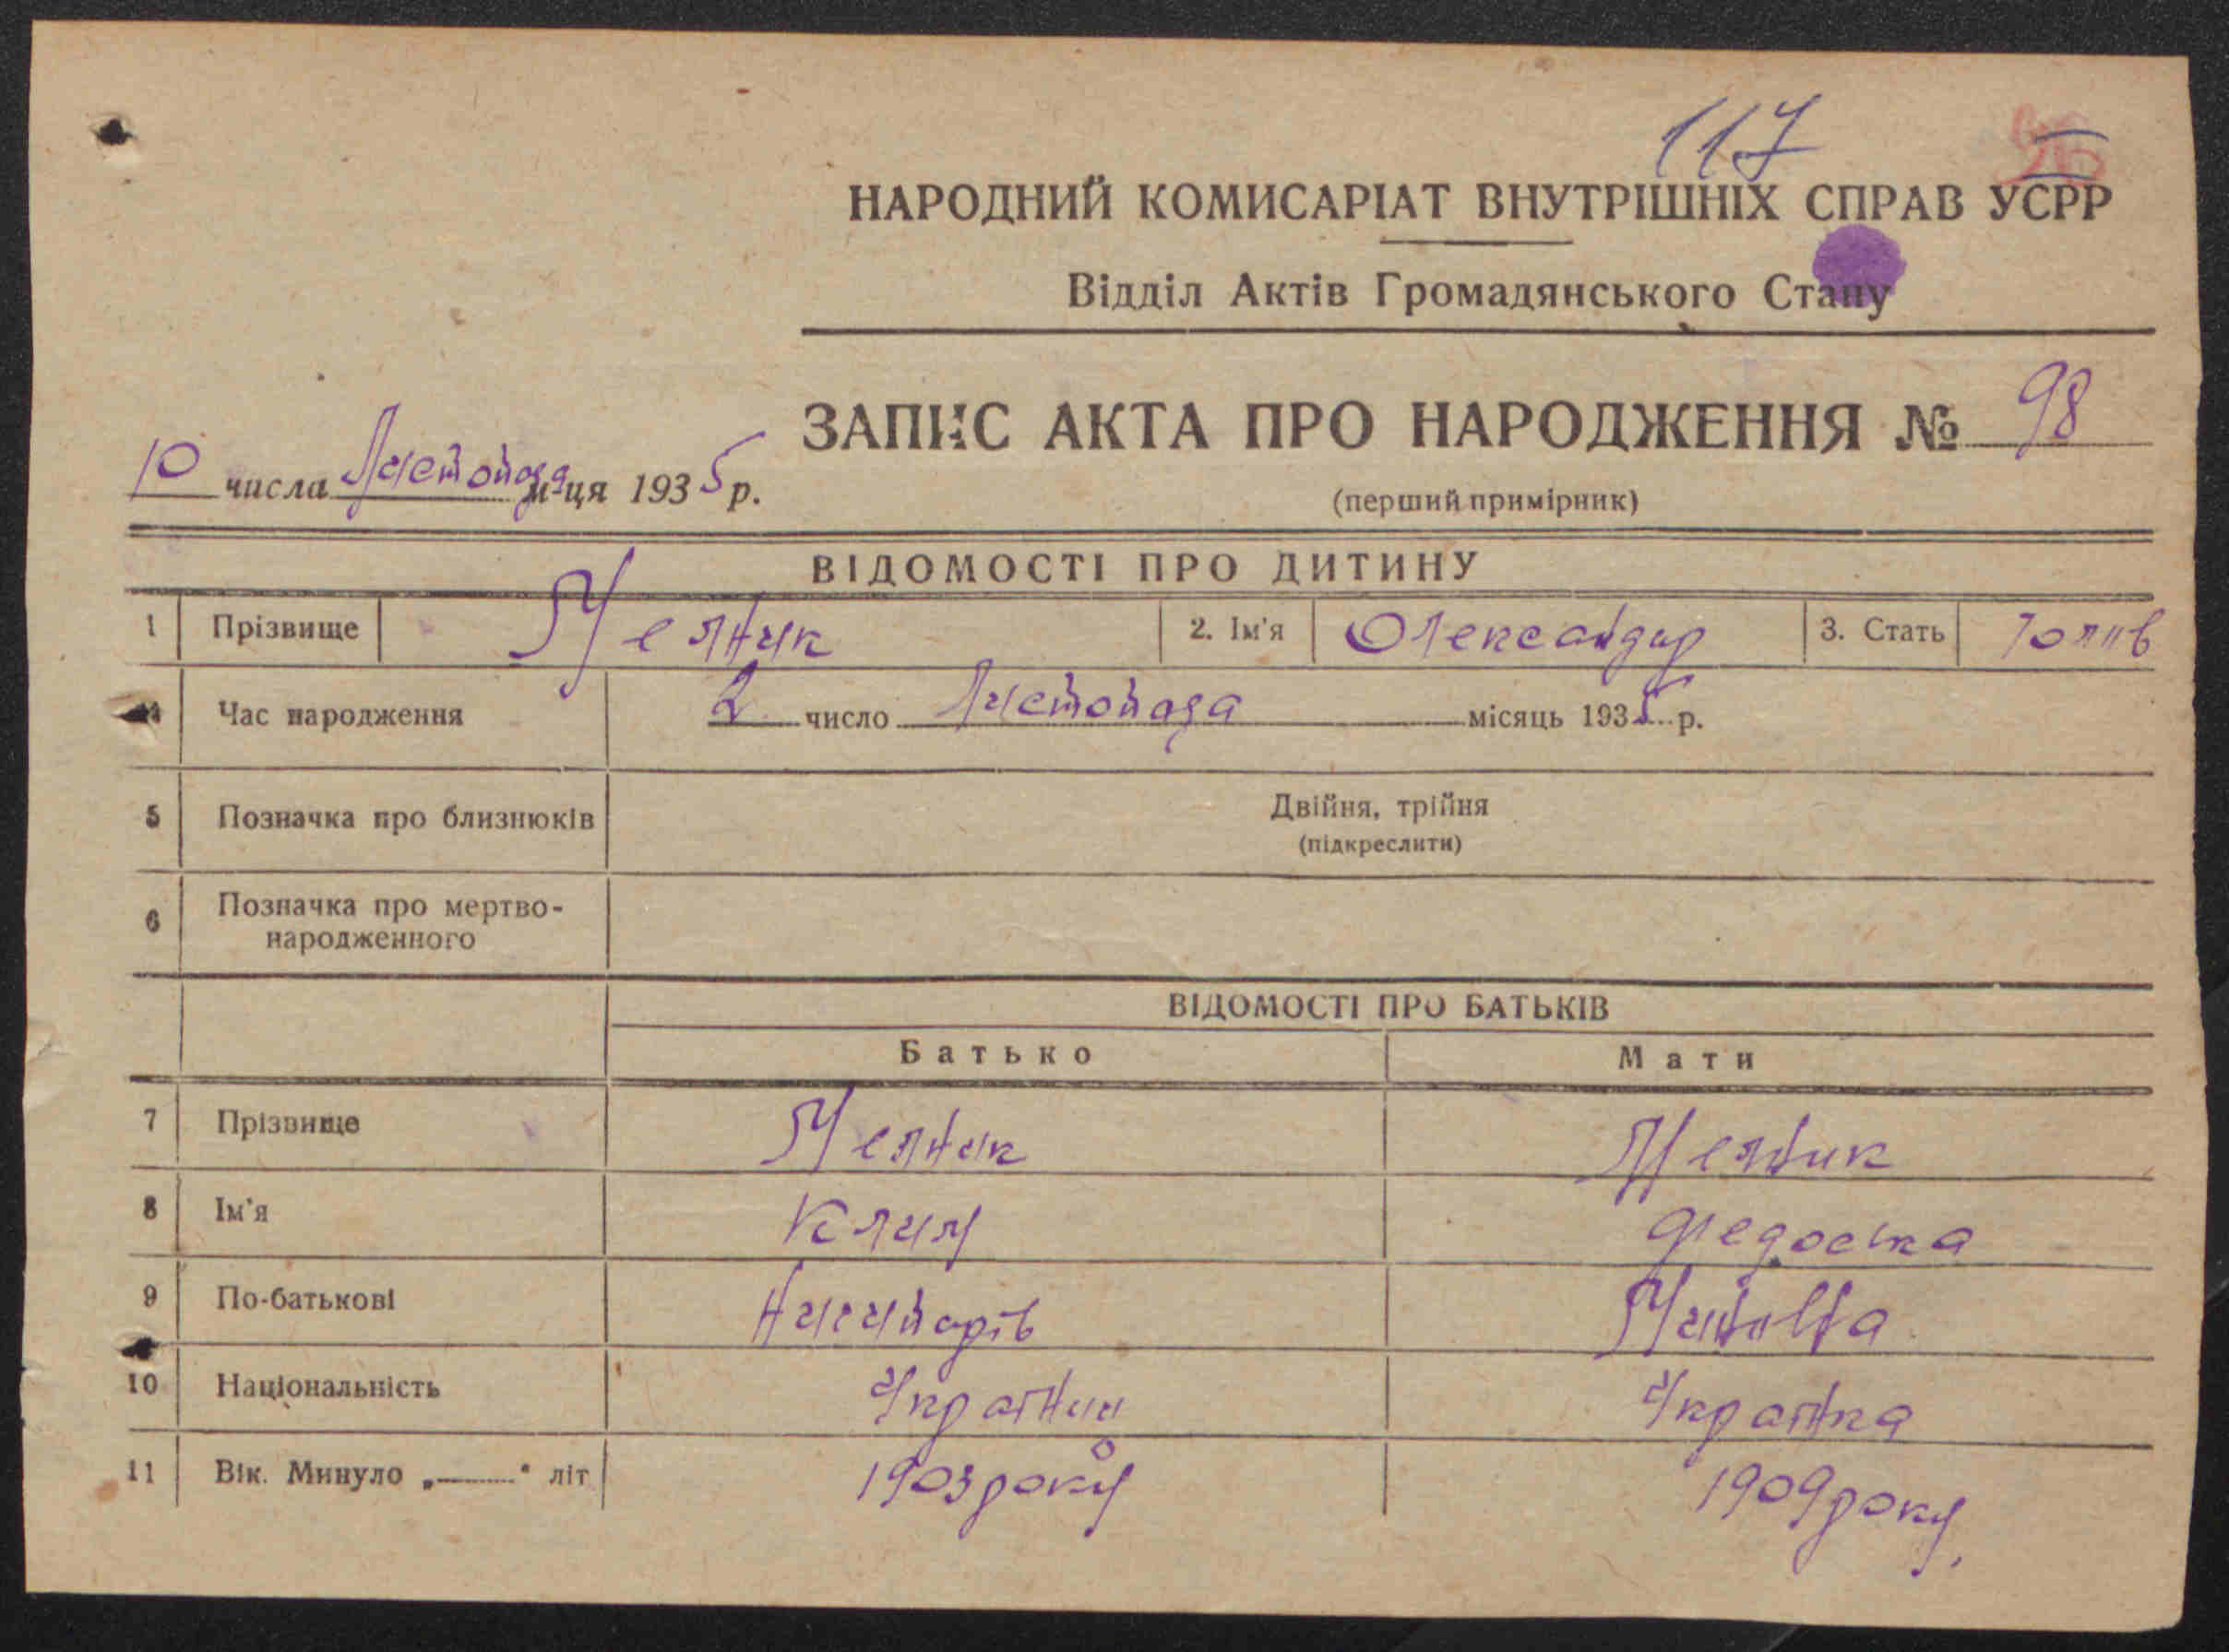 117
НАРОДНИЙ КОМИСАРІАТ ВНУТРІШНІХ СПРАВ УСРР
Відділ Актів Громадянського Стану
ЗАПИС АКТА ПРО НАРОДЖЕННЯ № 98
10 числа Листопада м-ця 1935 р.
(перший примірник)
ВІДОМОСТІ ПРО ДИТИНУ
1 Прізвище Мелник 2. Ім'я Олександир 3. Стать
4 Час народження 2 число Листопада місяць 1935 р.
5 Позначка про близнюків Двійня, трійня
(підкреслити)
6 Позначка про мертво-
народженного
ВІДОМОСТІ ПРО БАТЬКІВ
Батько Мати
7 Прізвище Мелник Мелник
8 Ім'я Клим Федоска
9 По-батькові
10 Національність Українц Українка
11 Вік. Минуло „ " літ 1903 року 1909 року